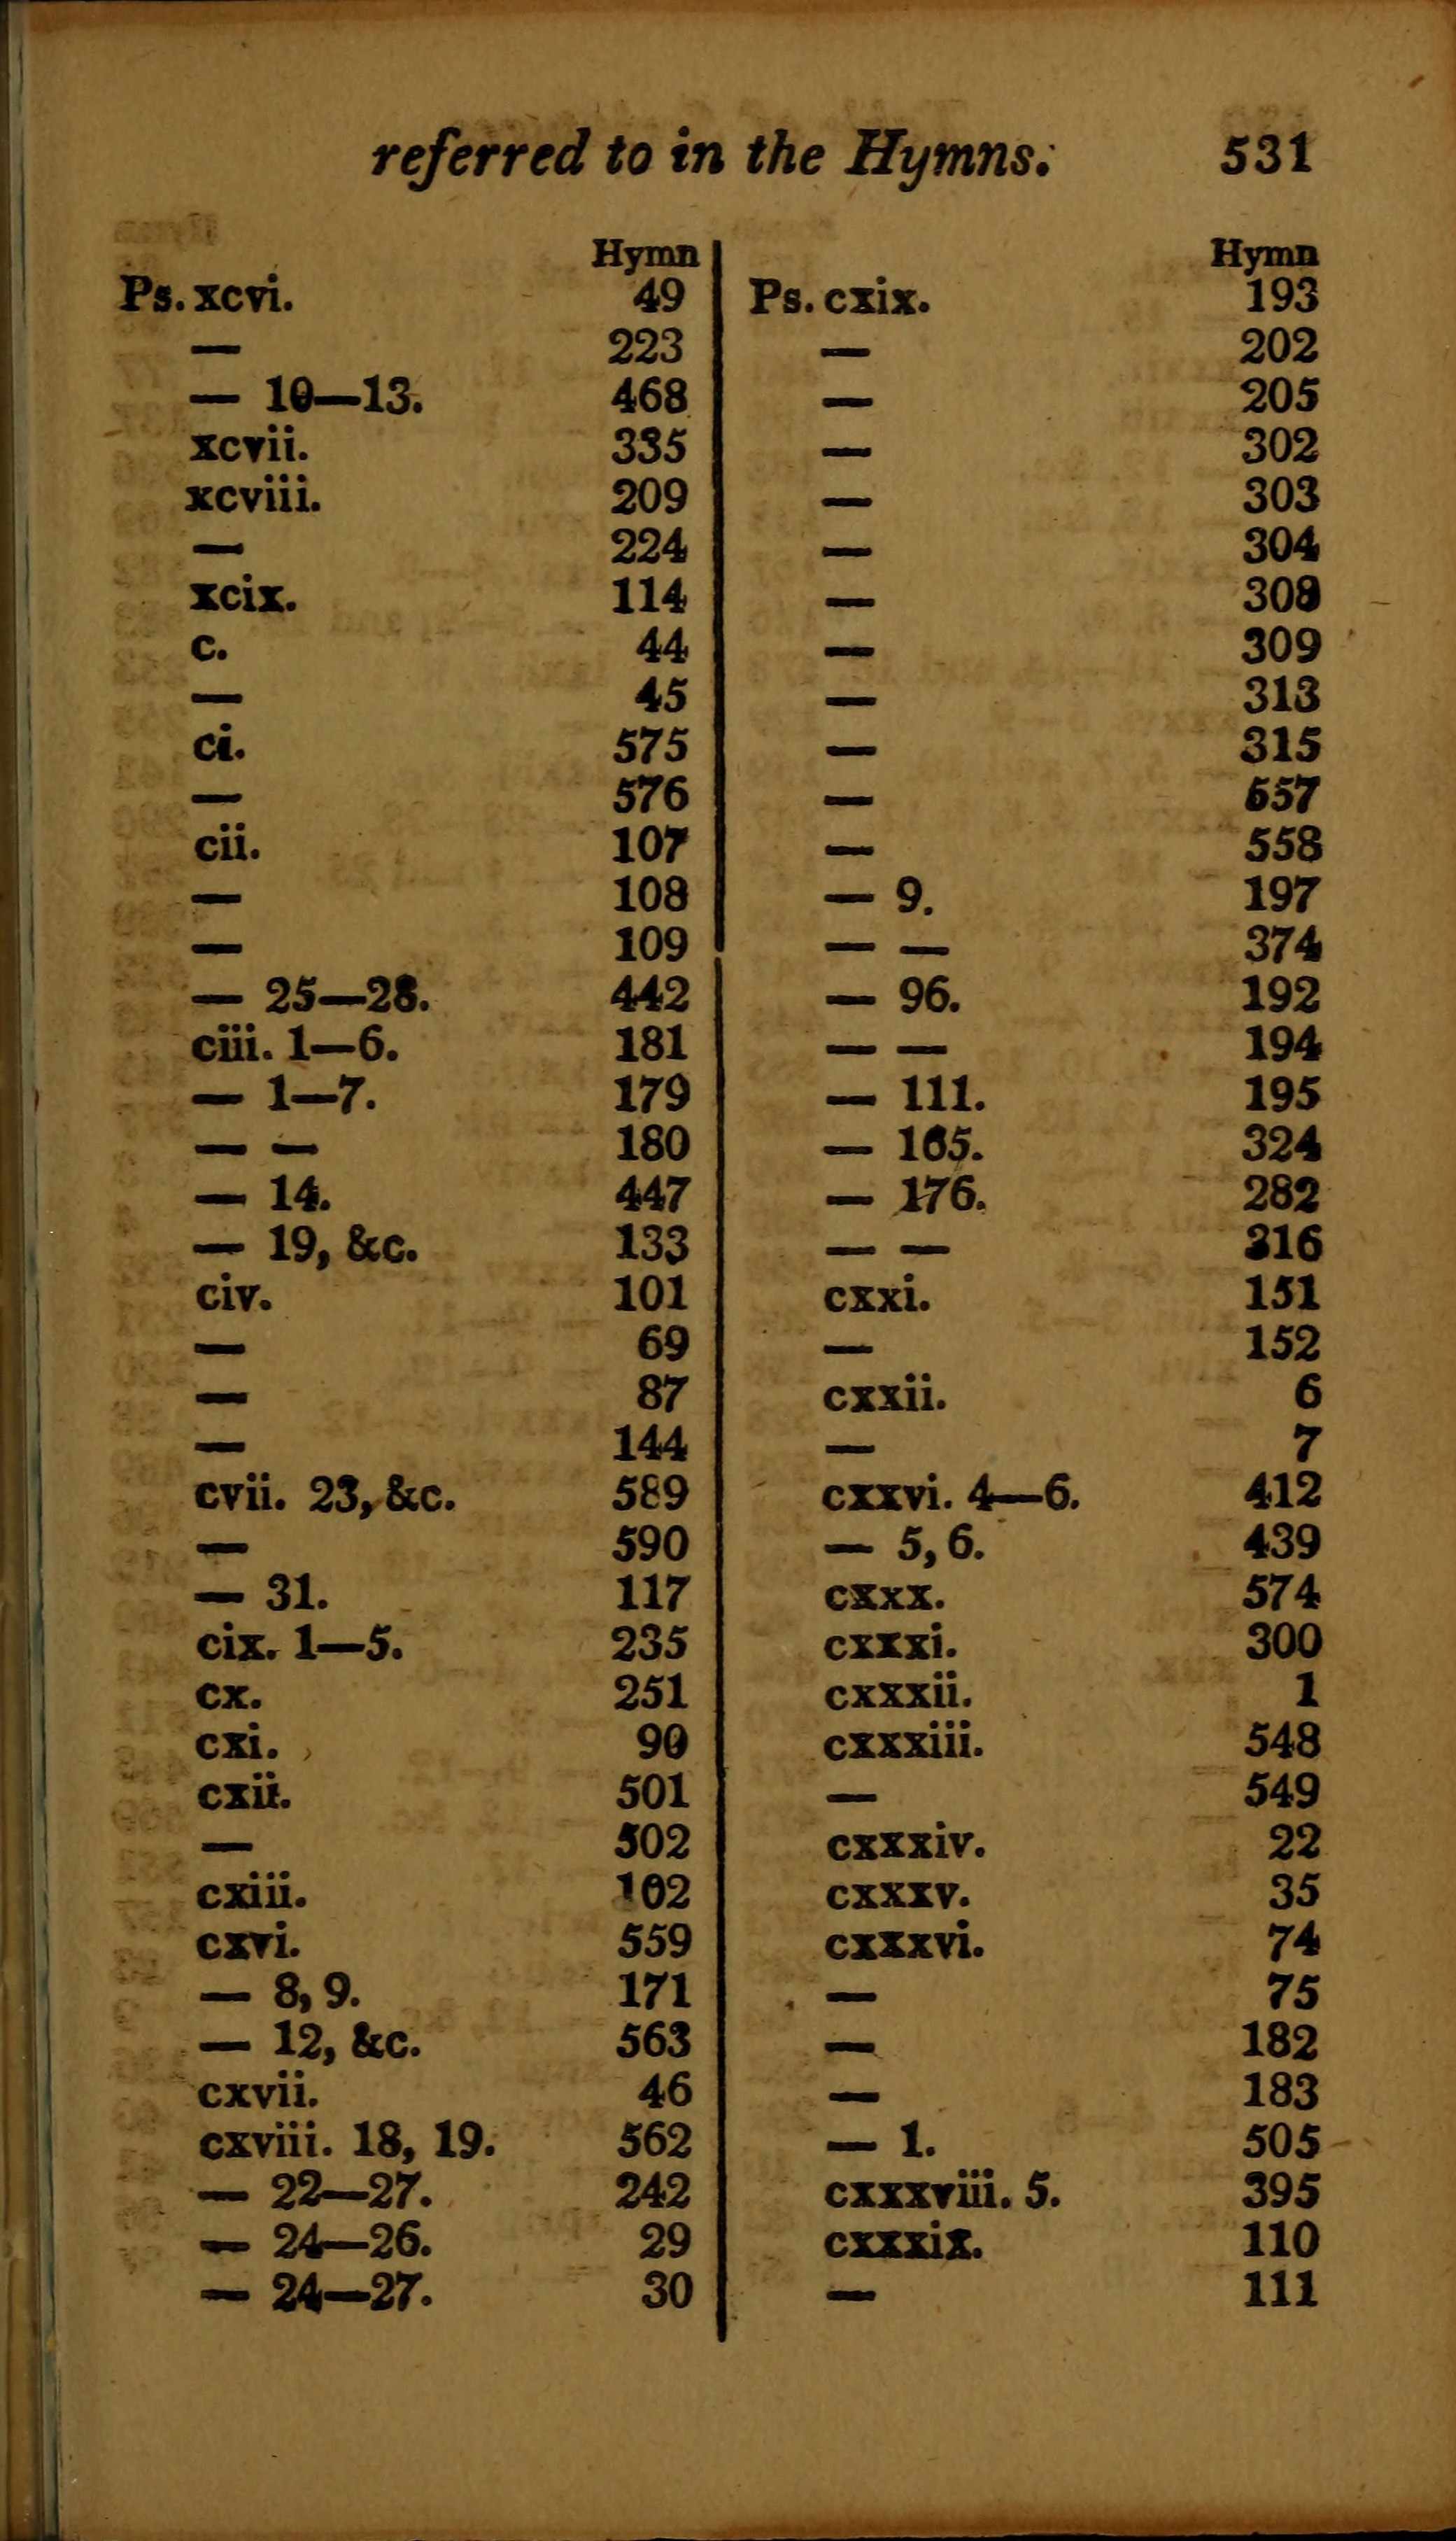 referred to in the Hymns. 531
Hymn
Ps. xcvi. 49
— 223
— 10—13. 468
xcvii. 335
xcviii. 209
— 224
xcix. 114
c. 44
— 45
ci. 575
— 576
cii. 107
— 108
— 109
— 25—28. 442
ciii. 1—6. 181
— 1—7. 179
— — 180
— 14. 447
— 19, &c. 133
civ. 101
— 69
— 87
— 144
cvii. 23, &c. 589
— 590
— 31. 117
cix. 1—5. 235
cx. 251
cxi. 90
cxii. 501
— 502
cxiii. 102
cxvi. 559
— 8, 9. 171
— 12, &c. 563
cxvii. 46
cxviii. 18, 19. 562
— 22—27. 242
— 24—26. 29
— 24—27. 30
Hymn
Ps. cxix. 193
— 202
— 205
— 302
— 303
— 304
— 308
— 309
— 313
— 315
— 557
— 558
— 9. 197
— — 374
— 96. 192
— — 194
— 111. 195
— 165. 324
— 176. 282
— — 316
cxxi. 151
— 152
cxxii. 6
— 7
cxxvi. 4—6. 412
— 5, 6. 439
cxxx. 574
cxxxi. 300
cxxxii. 1
cxxxiii. 548
— 549
cxxxiv. 22
cxxxv. 35
cxxxvi. 74
— 75
— 182
— 183
— 1. 505
cxxxviii. 5. 395
cxxxix. 110
— 111